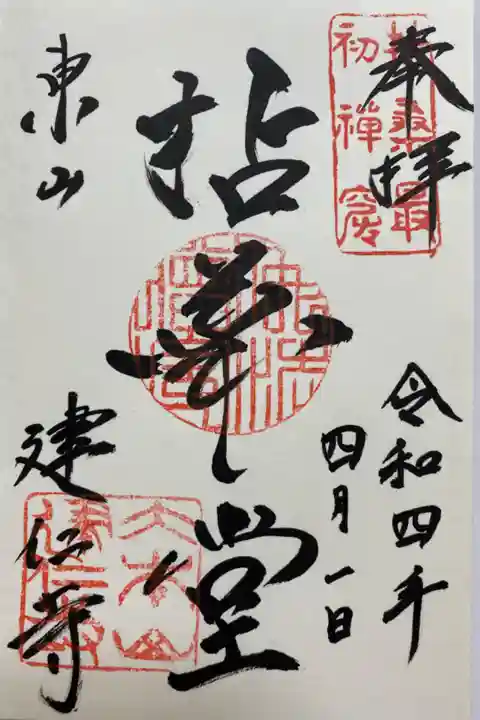 奉拝
扶桑最
初禅窟
令和四年
四月一日
拈華堂
東山
建仁寺